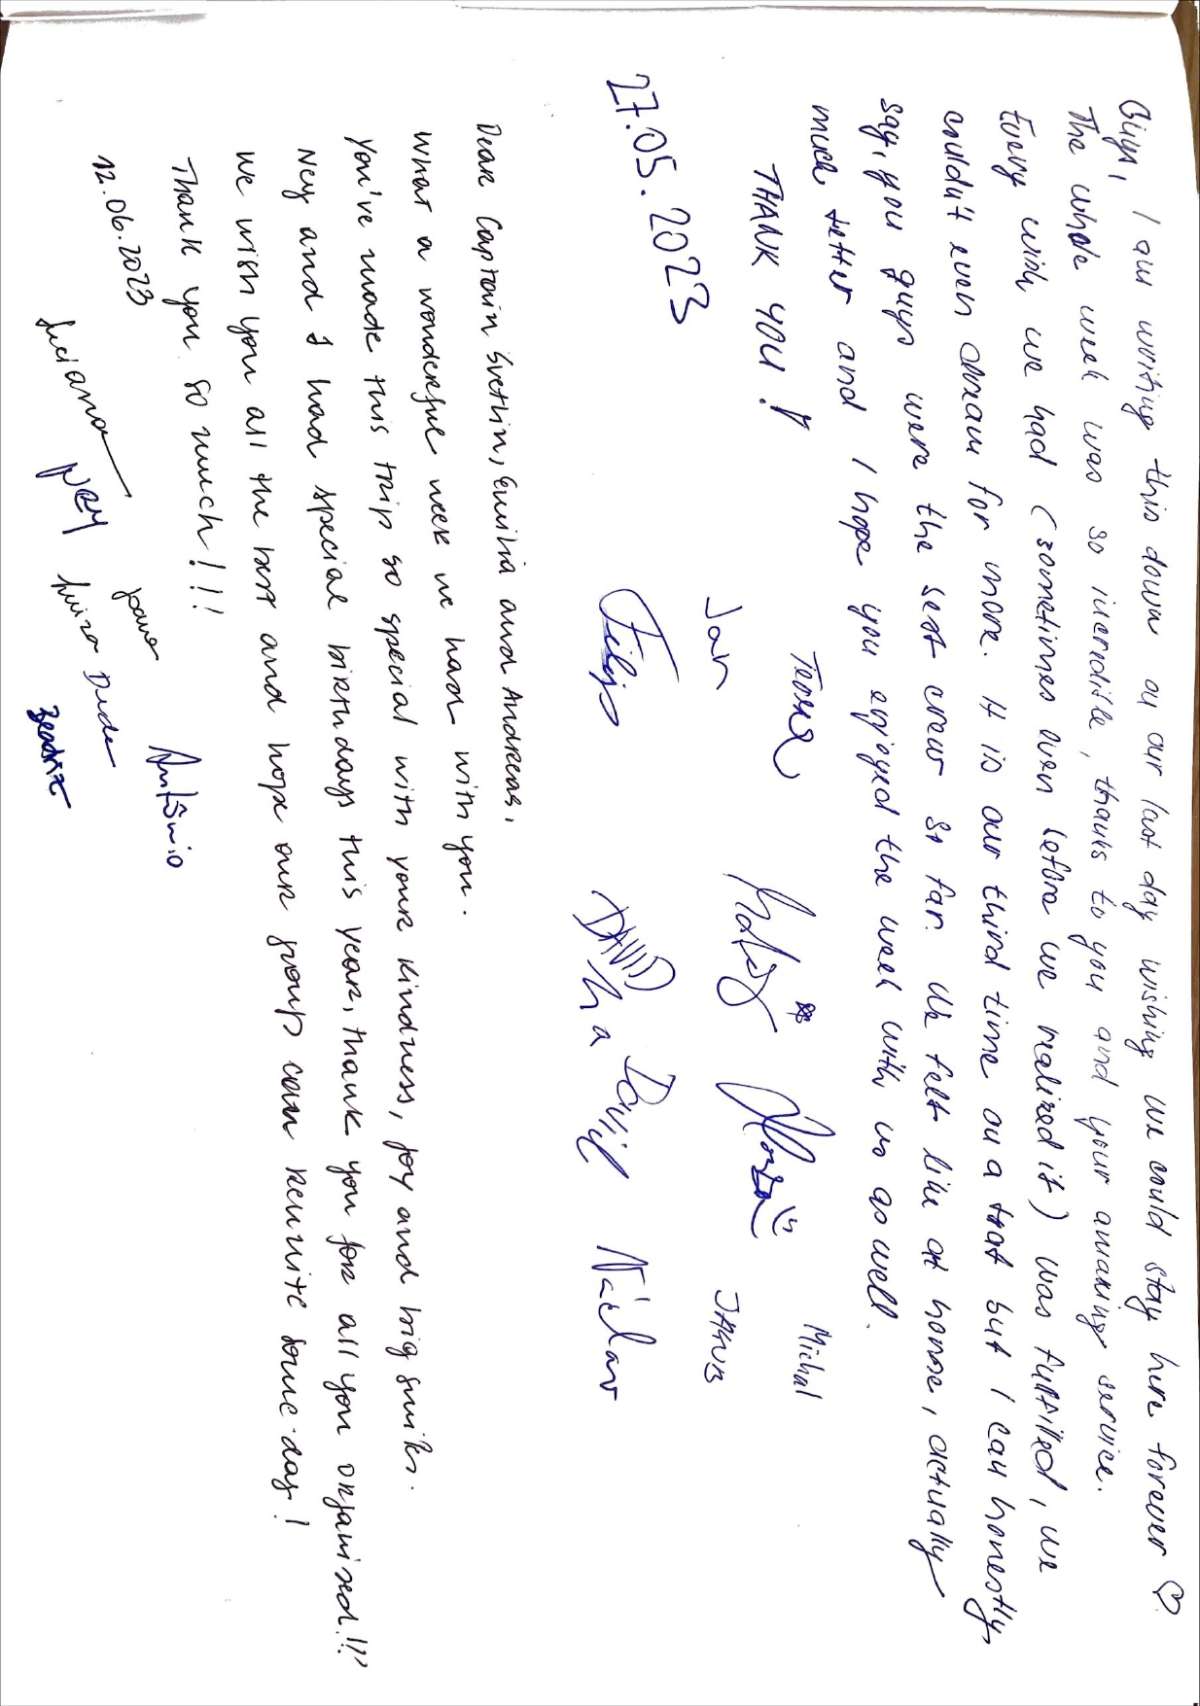 Guys, I am writing this down on our last day wishing we could stay here forever ♡.
The whole week was so incredible, thanks to you and your amazing service.
Every wish we had (sometimes even before we realized it) was fulfilled, we
couldn't even dream for more. It is our third time on a boat but I can honestly
say, you guys were the best crew so far. We felt like at home, actually
much better and I hope you enjoyed the week with us as well.
THANK YOU!
27.05.2023
Tereza
Michal
Jan
Matěj
Honza
JAKUB
Filip
DAVID
David
Václav
Dear Captain Svetlin, Emilia and Andreas,
What a wonderful week we had with you.
You've made this trip so special with your kindness, joy and big smiles.
Ney and I had special birthdays this year, thank you for all you organized!!!
We wish you all the best and hope our group can reunite some day!
Thank you so much!!!
12.06.2023
Luciana
NEY
Joana
Antônio
Luiza Duda
Beatriz